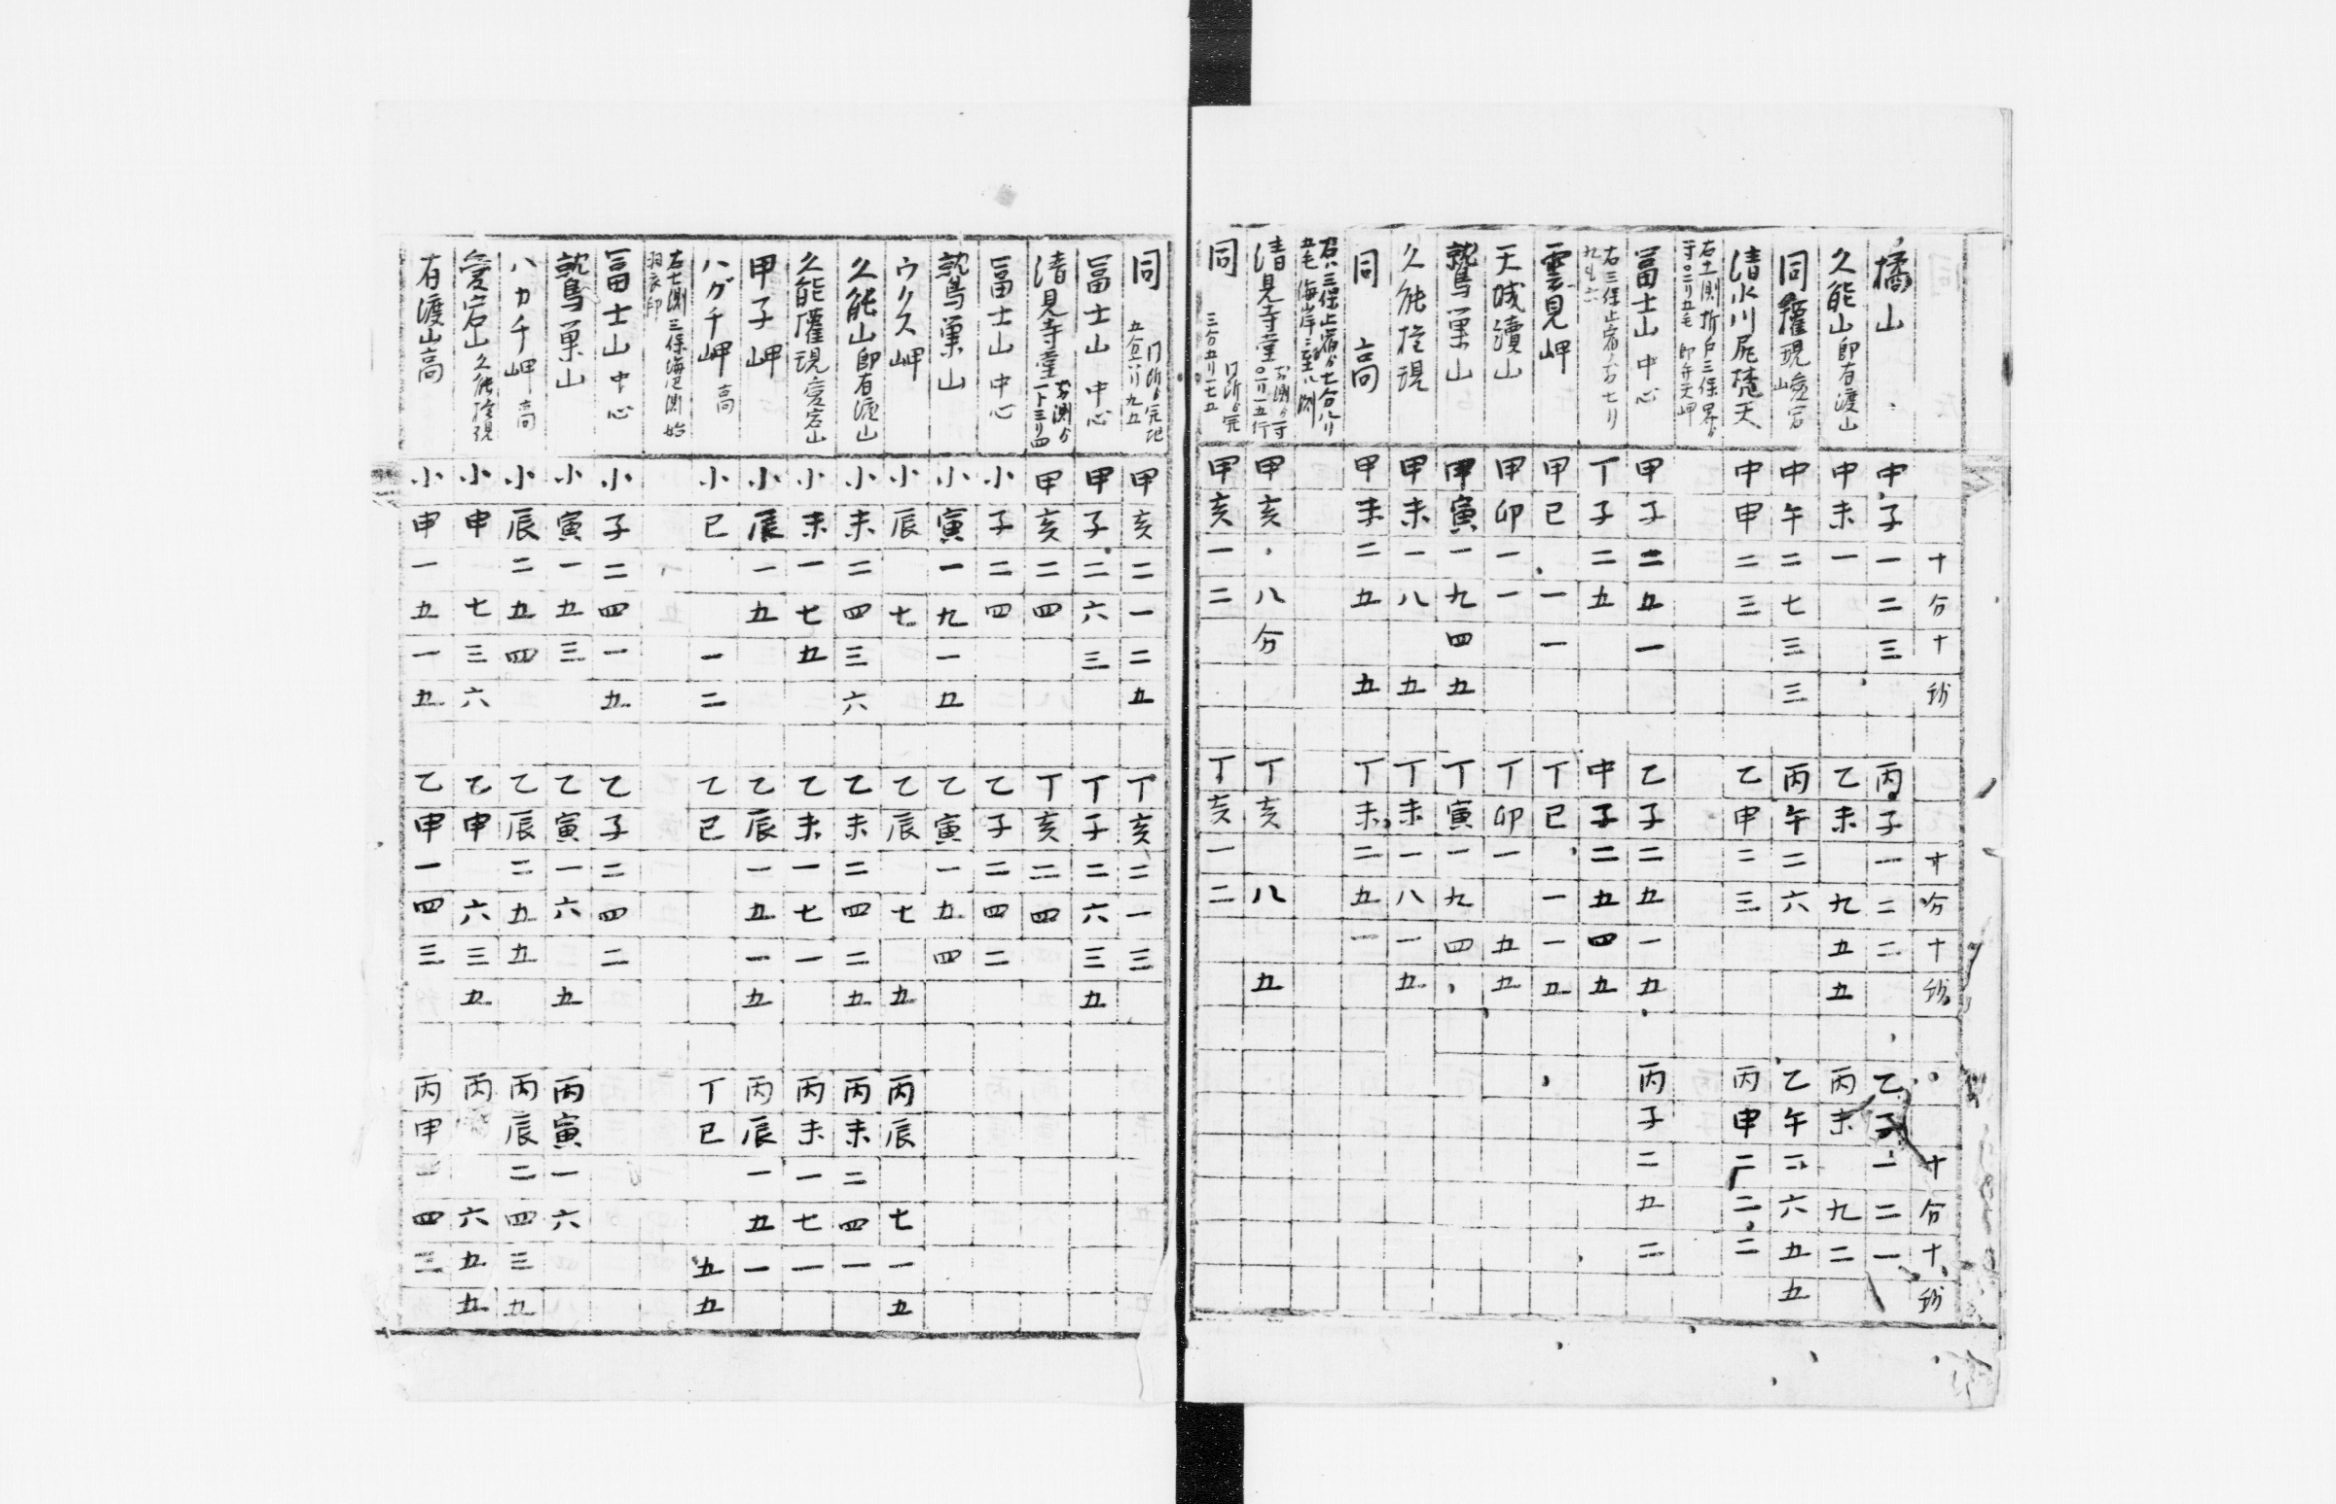 十分十釖 十分十釖 十分十釖
橘山 中子一二三 丙子一二二 乙子一二一
久能山即有渡山 中未一 乙未九五五 丙未九二
同權現山愛宕 中午二七三三 丙午二六 乙午二六五五
清水川尻梵天 中申二三 乙申二三 丙申二二二
右土測折戸三保界ゟ
寸〇二リ五毛 即弁天岬
冨士山中心 甲子二五一 乙子二五一五 丙子二五二
右三保止宿ゟ七リ
丁子二五 中子二五四五
雲見岬 甲巳一一 丁巳一一五
天城瀆山 甲卯一一 丁卯一五五
鷲巣山 甲寅一九四五 丁寅一九四
久能権現 甲未一八五 丁未一八一五
同 高 甲未二五五 丁未二五一
右八三保止宿ゟ七合八リ
五毛海岸三至ル測
清見寺堂 甲亥八分 丁亥八五
同 甲亥一二 丁亥一二
同 甲亥二一二五 丁亥二一三
冨士山中心 甲子二六三 丁子二六三五
清見寺堂 甲亥二四 丁亥二四
冨士山中心 小子二四 乙子二四二
鷲巣山 小寅一九一五 乙寅一五四
ウリス岬 小辰七 乙辰七五 丙辰七一五
久能山即有渡山 小未二四三六 乙未二四二五 丙未二四一
久能權現愛宕山 小未一七五 乙未一七一 丙未一七一
甲子岬 小辰一五 乙辰一五一五 丙辰一五一
ハグチ岬高 小巳一二 乙巳 丁巳五五
右七測三保海辺測始
羽衣印
冨士山中心 小子二四一五 乙子二四二
鷲巣山 小寅一五三 乙寅一六五 丙寅一六
ハカチ岬高 小辰二五四 乙辰二五五 丙辰二四三五
愛宕山久能権現 小申七三六 乙申六三五 丙六五五
有渡山高 小申一五一五 乙申一四三 丙申一四三